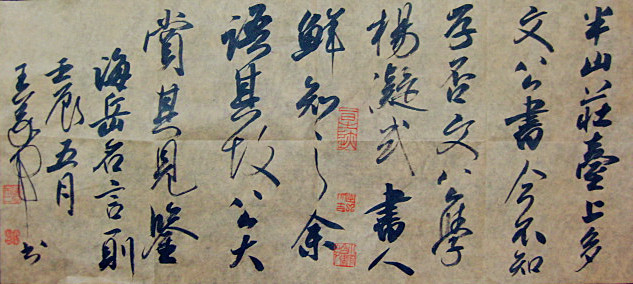 半山莊臺上多
文公書今不知
存否文公學
楊凝式書人
鮮知之余
語其故公大
賞其見鑒
海岳名言則
壬辰五月
王 书